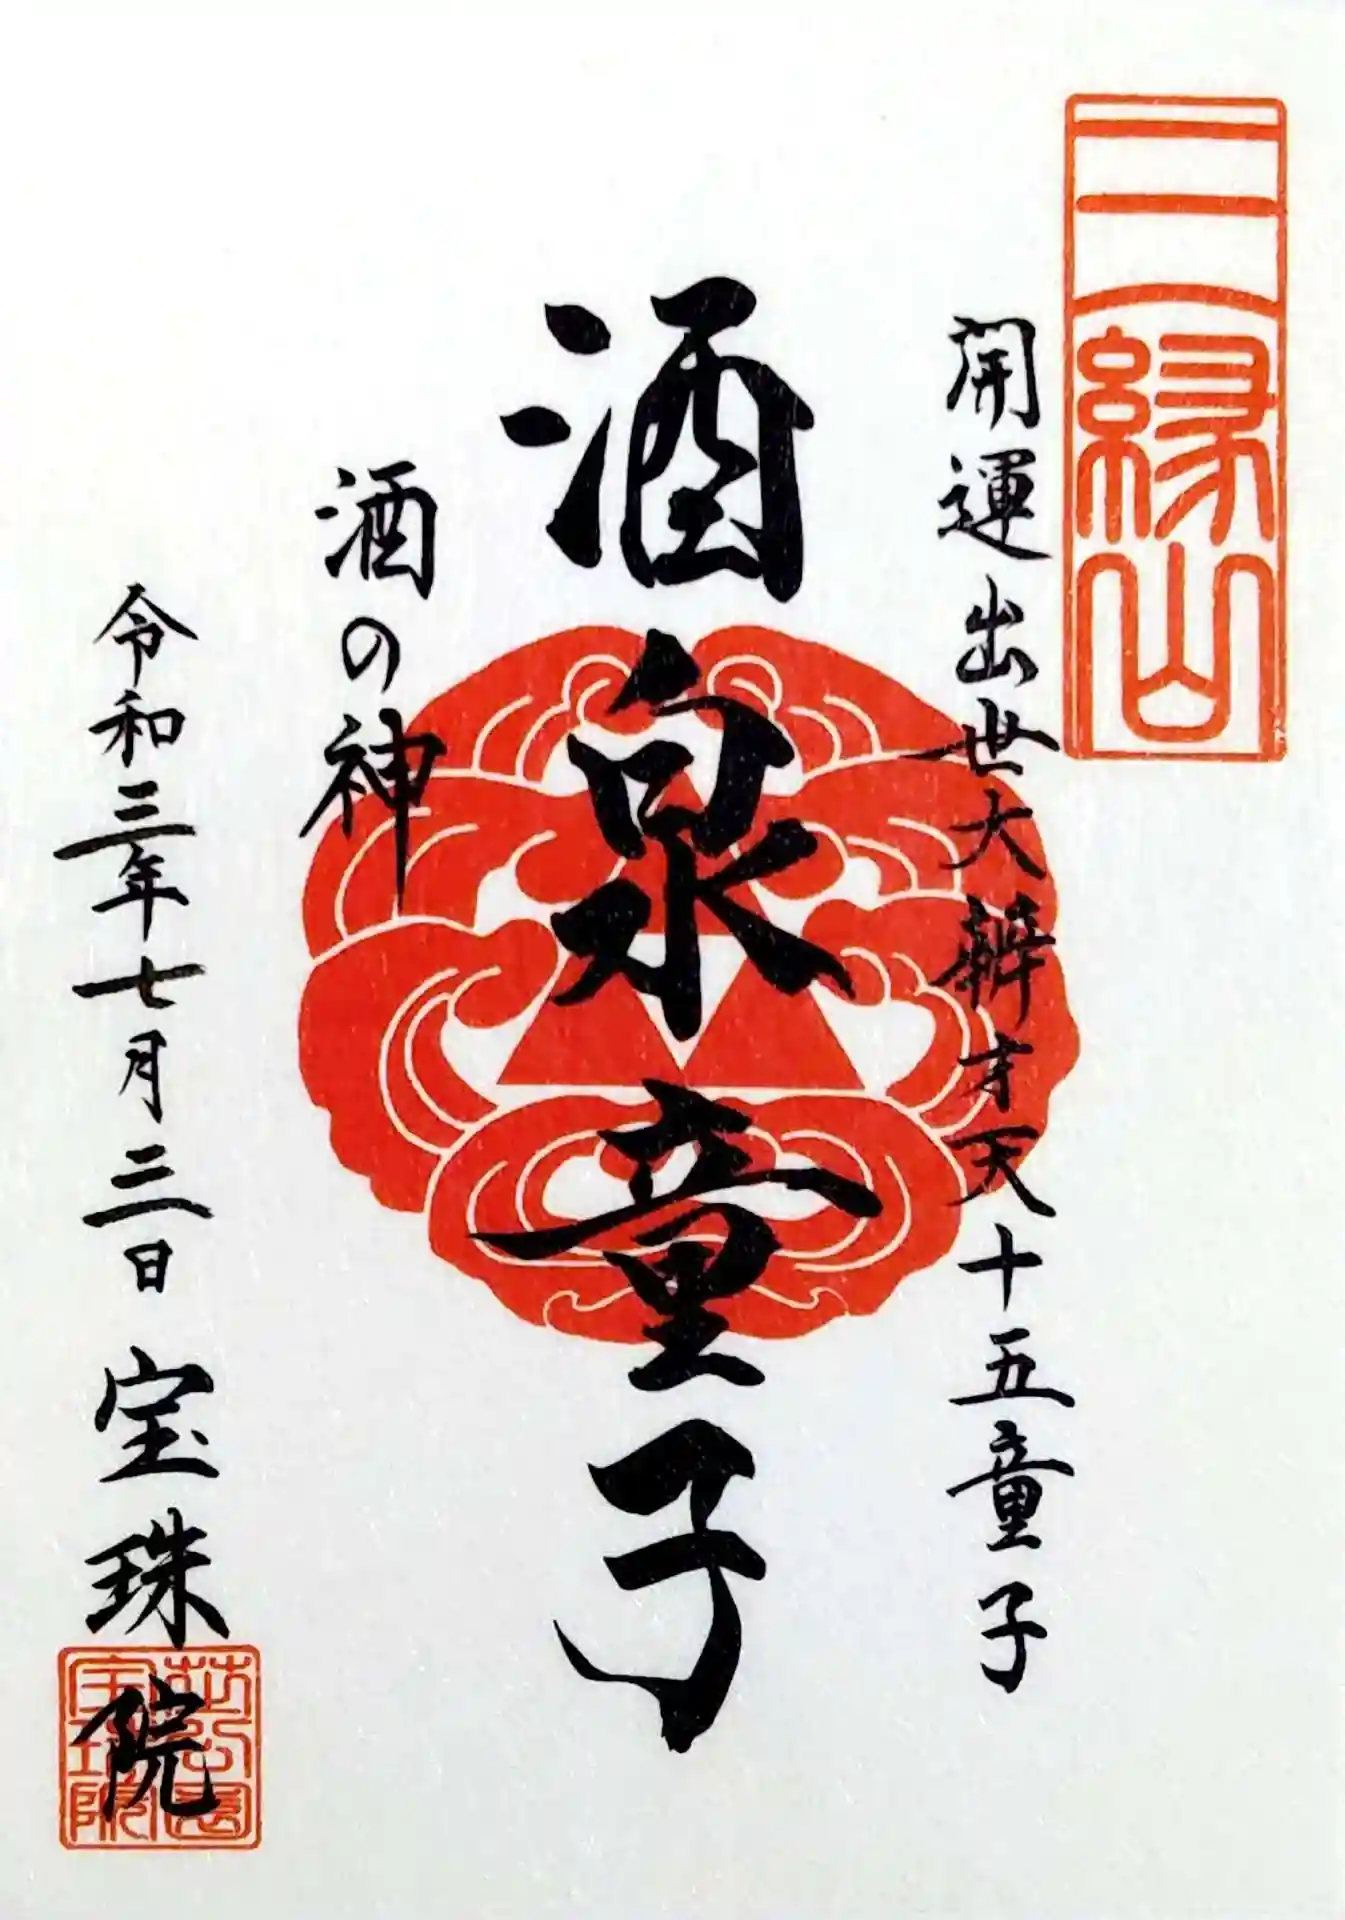 三縁山
開運出世大辨才天十五童子
酒泉童子
酒の神
令和三年七月三日 宝珠院
芝公園
宝珠院